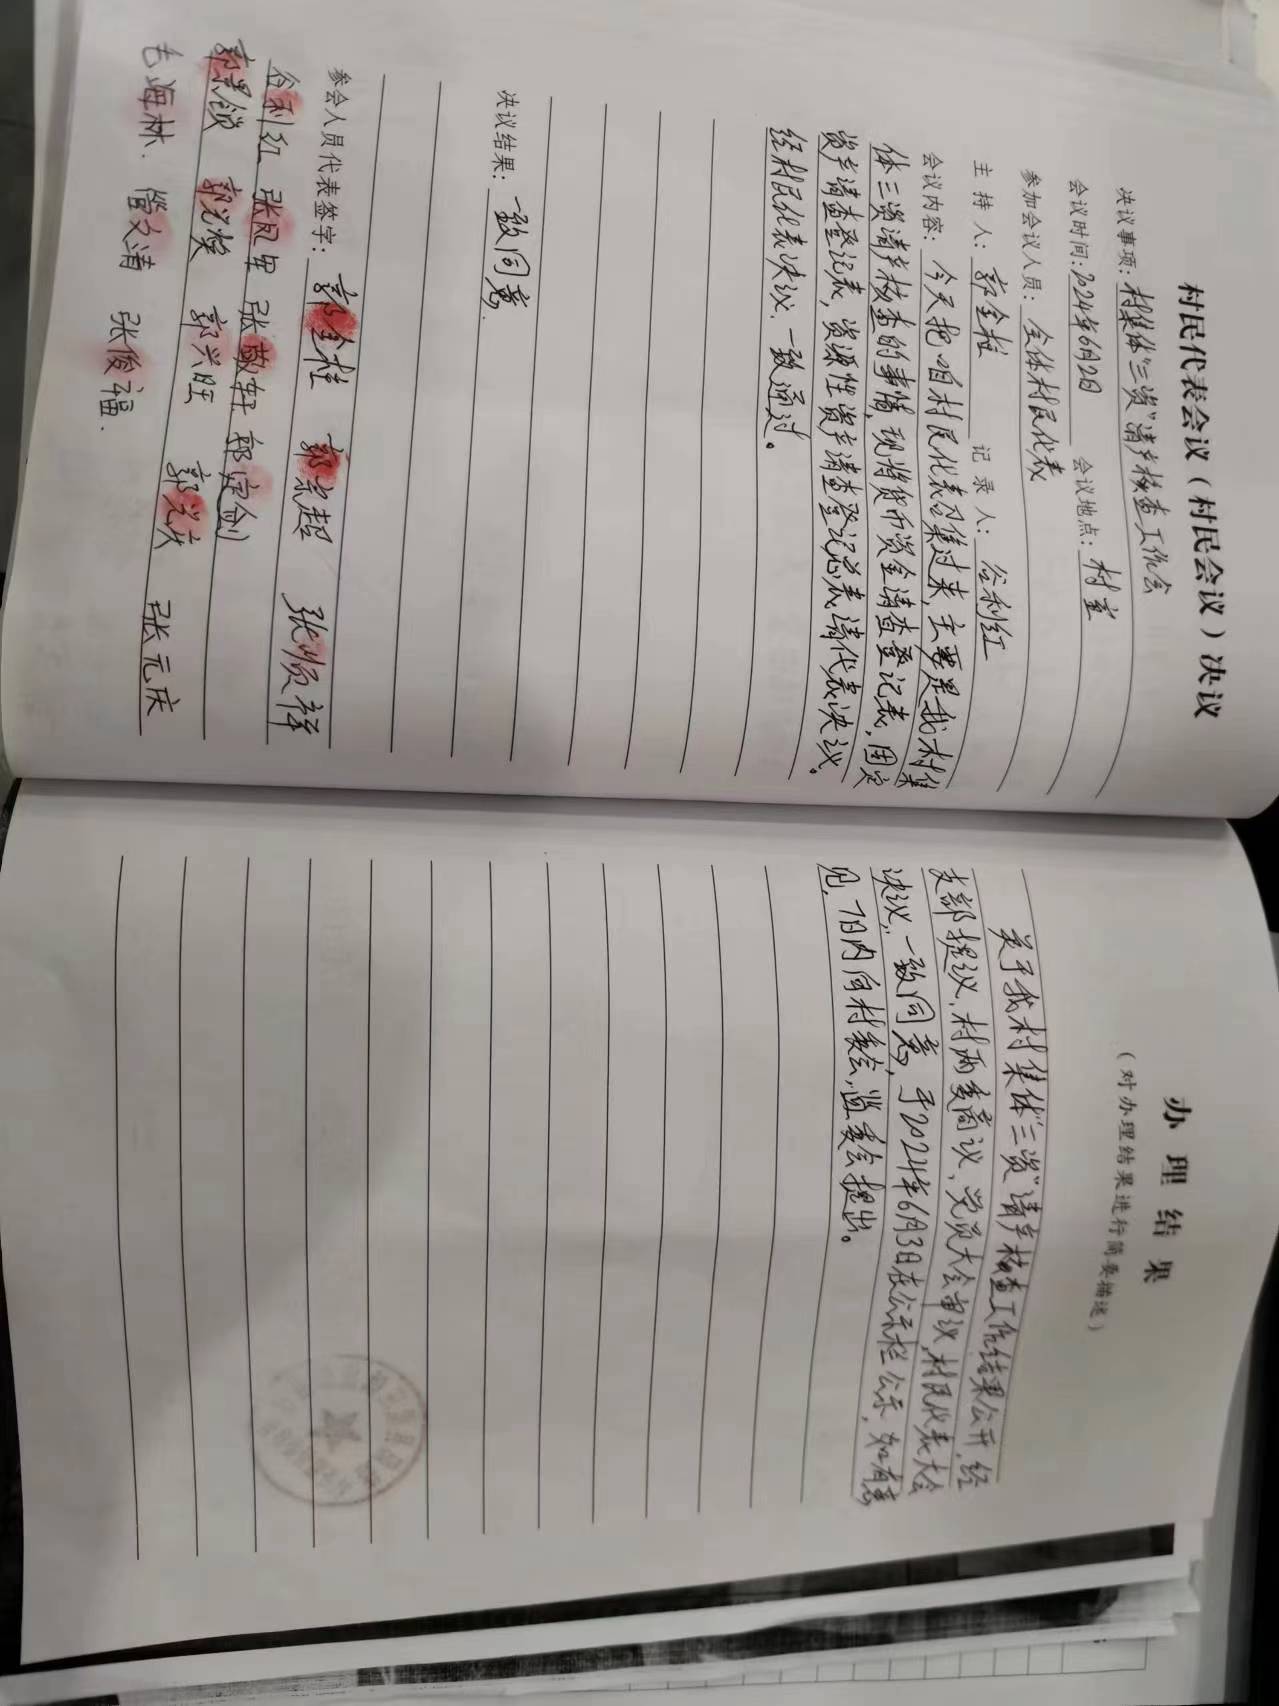 村民代表会议（村民会议）决议
决议事项：村集体“三资”清产核查工作会
会议时间：2024年6月2日 会议地点：村室
参加会议人员：全体村民代表
主持人：郭全柱 记录人：谷利红
会议内容：今天把咱村民代表召集过来，主要是我村集
体三资清产核查的事情，现将货币资金清查登记表，固定
资产清查登记表，资源性资产清查登记总表请代表决议。
经村民代表决议：一致通过。
决议结果：一致同意.
参会人员代表签字：郭全柱 郭景超 张顺祥
谷利红 张凤军 张敬轩 郭定剑
郭景锁 郭光焕 郭兴旺 郭兴庆 张元庆
毛海林. 管文清 张俊福.
办理结果
（对办理结果进行简要描述）
关于我村集体“三资”清产核查工作结果公开，经
支部提议，村两委商议，党员大会审议，村民代表大会
决议，一致同意，于2024年6月3日在公示栏公示，如有意
见，7日内向村委会，监委会提出。